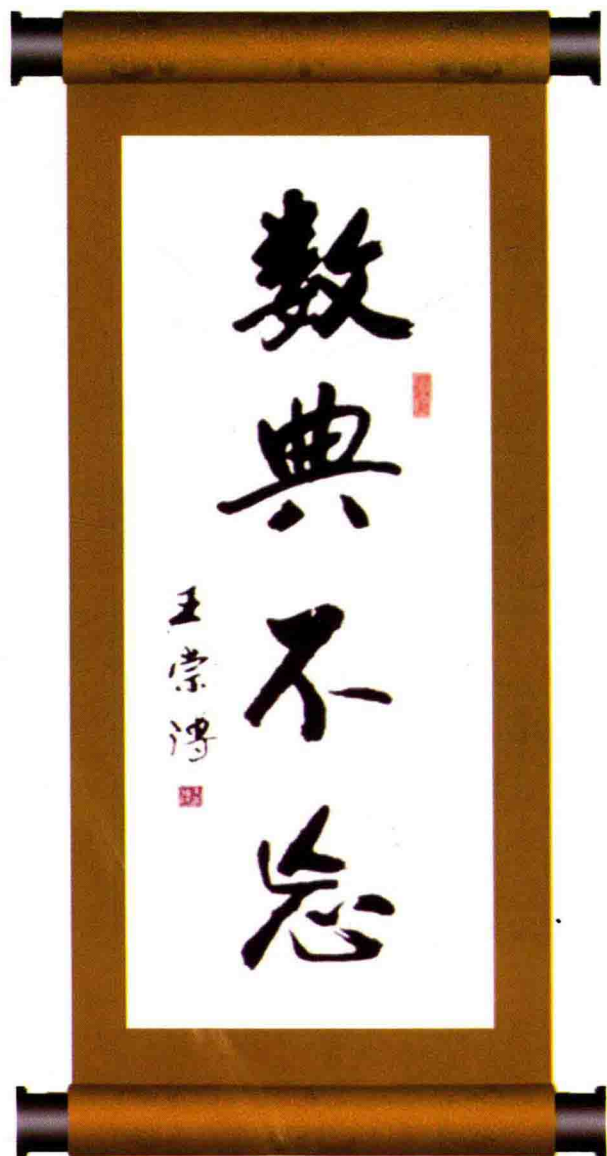 数典不忘
王崇溥